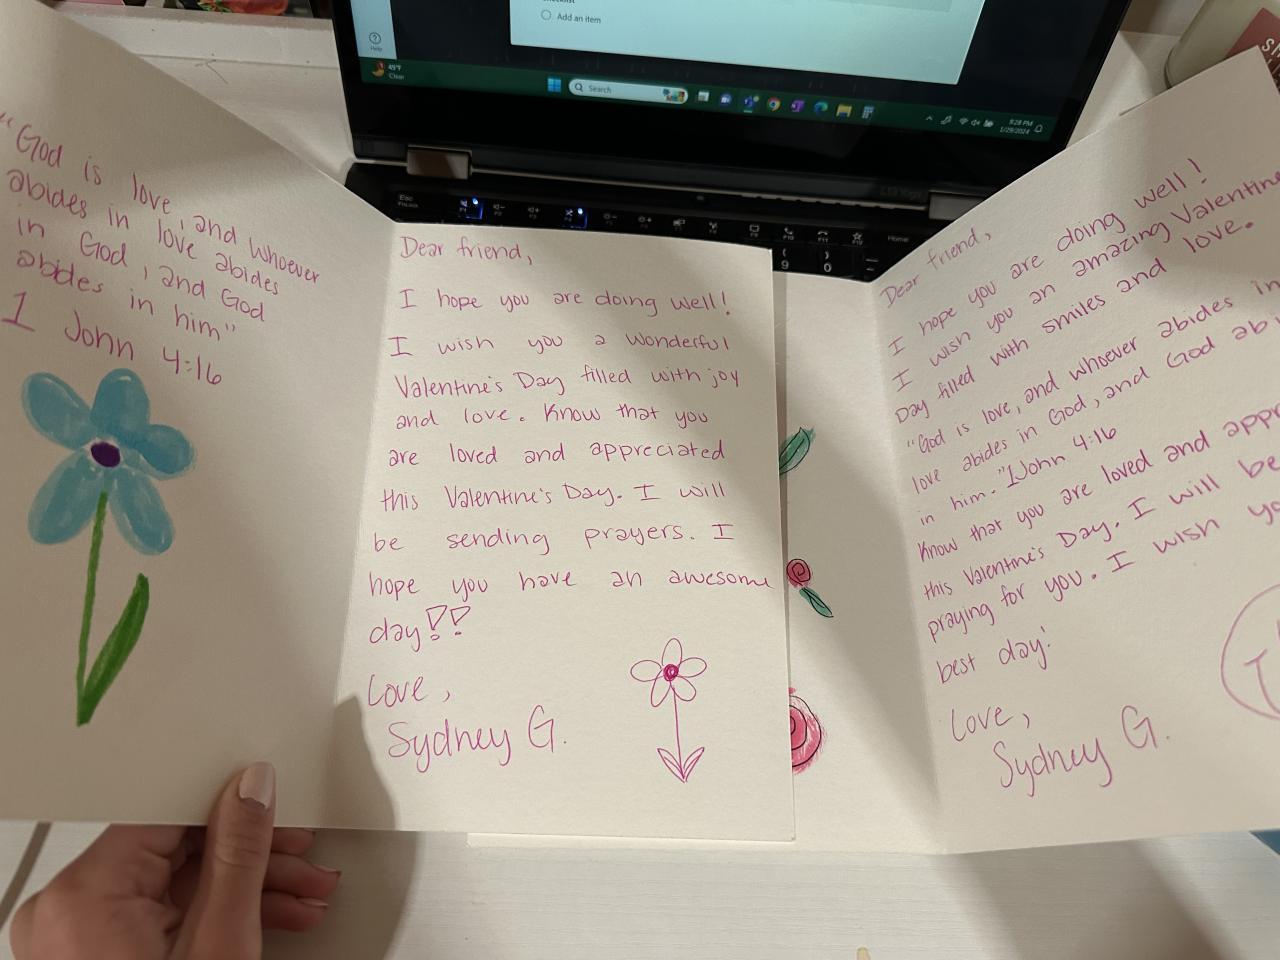 Checklist
Add an item
Help
45°F
Clear
Search
9:28 PM
1/29/2024
L13 Yoga
Esc
FnLock
F1
F2
F3
F4
F5
F6
F9
F10
F11
F12
Home
(
9
)
0
"God is love, and whoever
abides in love abides
in God, and God
abides in him"
1 John 4:16
Dear friend,
I hope you are doing well!
I wish you a wonderful
Valentine's Day filled with joy
and love. Know that you
are loved and appreciated
this Valentine's Day. I will
be sending prayers. I
hope you have an awesome
day!!
Love,
Sydney G.
Dear friend,
I hope you are doing well!
I wish you an amazing Valentine
Day filled with smiles and love.
"God is love, and whoever abides in
love abides in God, and God abi
in him." 1 John 4:16
Know that you are loved and appr
this Valentine's Day. I will be
praying for you. I wish yo
best day!
Love,
Sydney G.